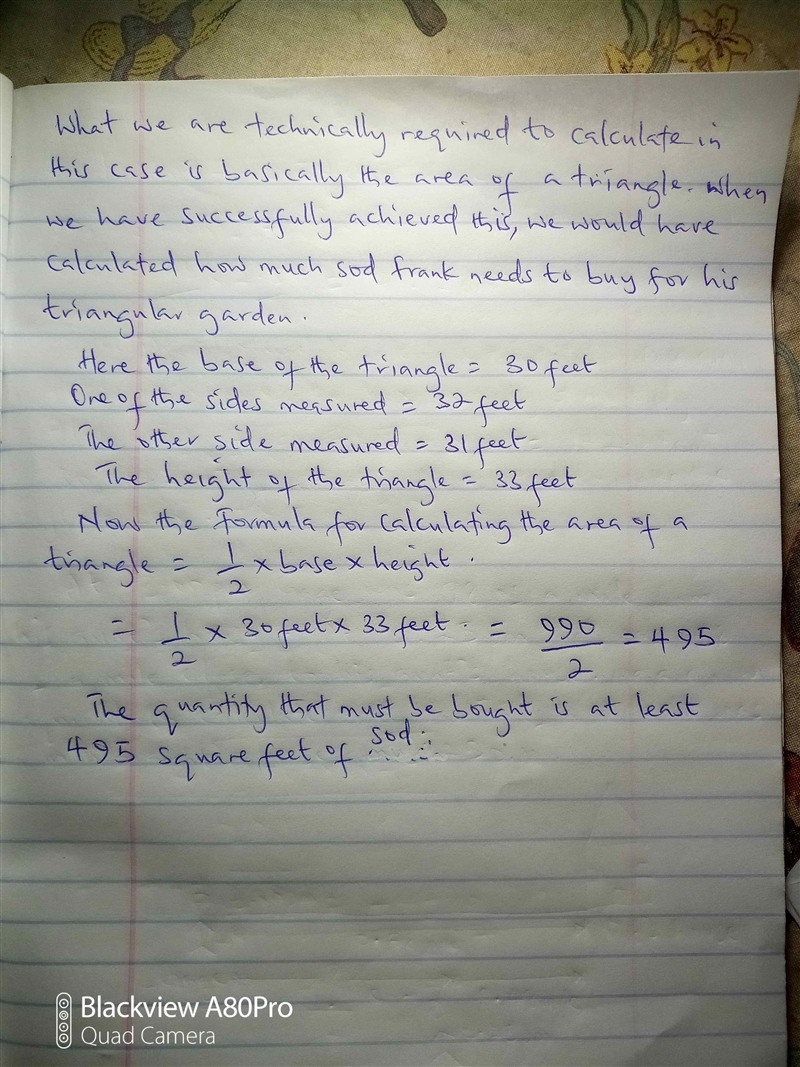 What we are technically required to calculate in
this case is basically the area of a triangle. When
we have successfully achieved this, we would have
calculated how much sod frank needs to buy for his
triangular garden.
Here the base of the triangle = 30 feet
One of the sides measured = 32 feet
The other side measured = 31 feet
The height of the triangle = 33 feet
Now the formula for calculating the area of a
triangle = 1/2 × base × height.
= 1/2 × 30 feet × 33 feet. = 990/2 = 495
The quantity that must be bought is at least
495 square feet of sod.
Blackview A80Pro
Quad Camera